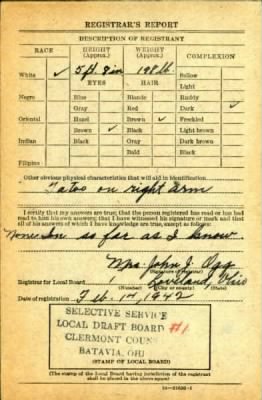 REGISTRAR'S REPORT
DESCRIPTION OF REGISTRANT
RACE HEIGHT (Approx.) WEIGHT (Approx.) COMPLEXION
White ✓ 5 ft. 8 in 198 lb Sallow
EYES HAIR Light
Negro Blue Blonde Ruddy
Gray Red Dark ✓
Oriental Hazel Brown ✓ Freckled
Brown ✓ Black Light brown
Indian Black Gray Dark brown
Bald Black
Filipino
Other obvious physical characteristics that will aid in identification
Tatoo on right arm
I certify that my answers are true; that the person registered has read or has had
read to him his own answers; that I have witnessed his signature or mark and that
all of his answers of which I have knowledge are true, except as follows:
None In so far as I know.
Mrs. John J. Ogg
(Signature of registrar)
Registrar for Local Board 1 Loveland, Ohio
Date of registration Feb. 1st, 1942
SELECTIVE SERVICE
LOCAL DRAFT BOARD #1
CLERMONT COUN
BATAVIA, OHI
(STAMP OF LOCAL BOARD)
(The stamp of the Local Board having jurisdiction of the registrant
shall be placed in the above space)